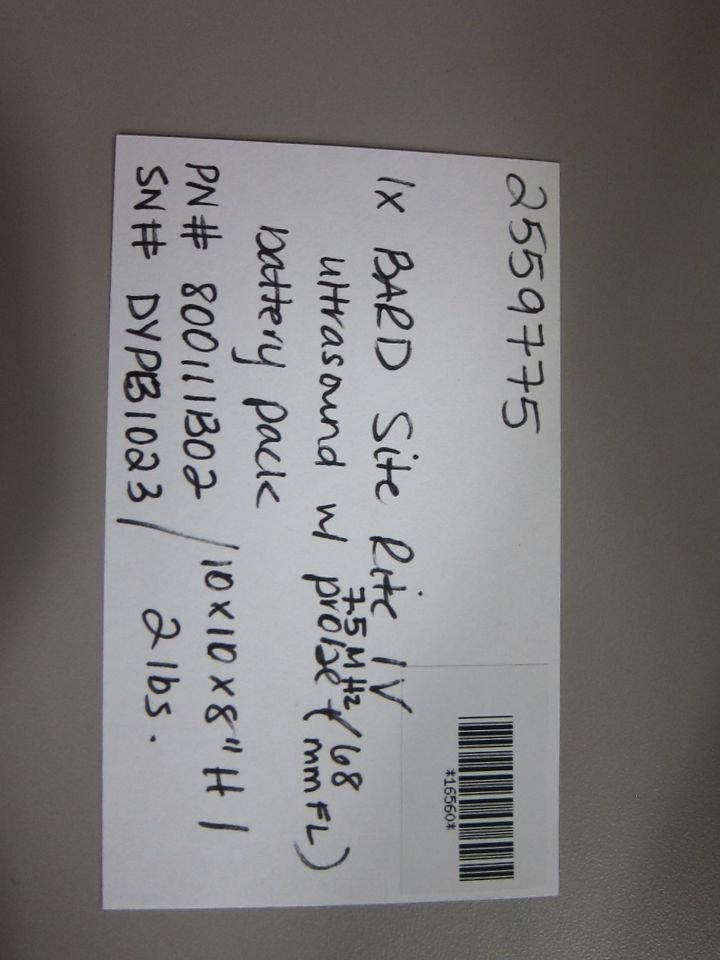 2559775
*16560*
1x BARD Site Rite IV
ultrasound w/ probe (7.5 MHz / 68 mm FL)
battery pack
PN# 800111B02 / 10 x 10 x 8" H /
SN# DYPB1023 / 2 lbs.